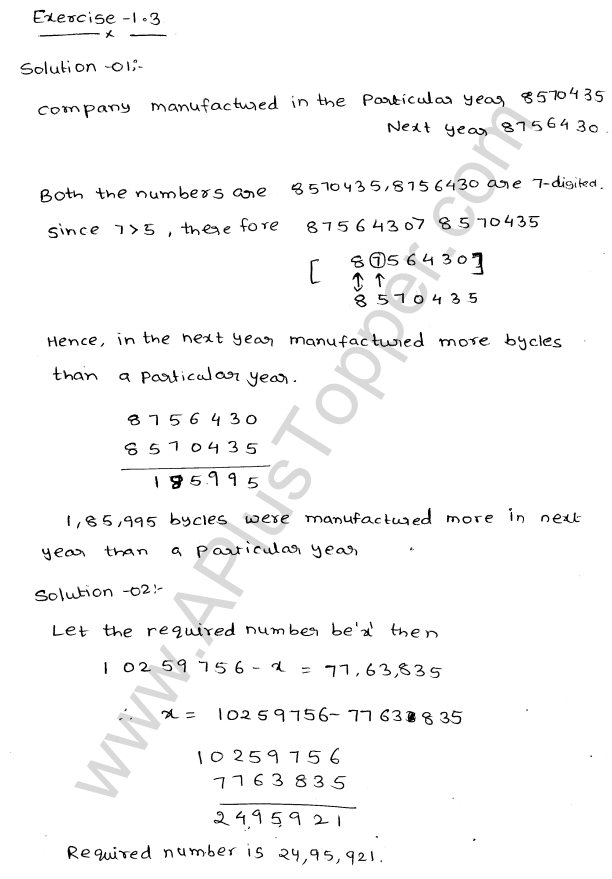 Exercise -1.3
Solution -01:-
Company manufactured in the Particular year 8570435
Next year 8756430.
Both the numbers are 8570435, 8756430 are 7-digited.
since 7>5, there fore 8756430> 8570435
[ 8⑦56430]
↕ ↑
8570435
Hence, in the next year manufactured more bycles
than a particular year.
8756430
8570435
185995
1,85,995 bycles were manufactured more in next
year than a particular year
Solution -02:-
Let the required number be 'x' then
10259756 - x = 77,63,835
∴ x = 10259756 - 7763835
10259756
7763835
2495921
Required number is 24,95,921.
www.APlusTopper.com